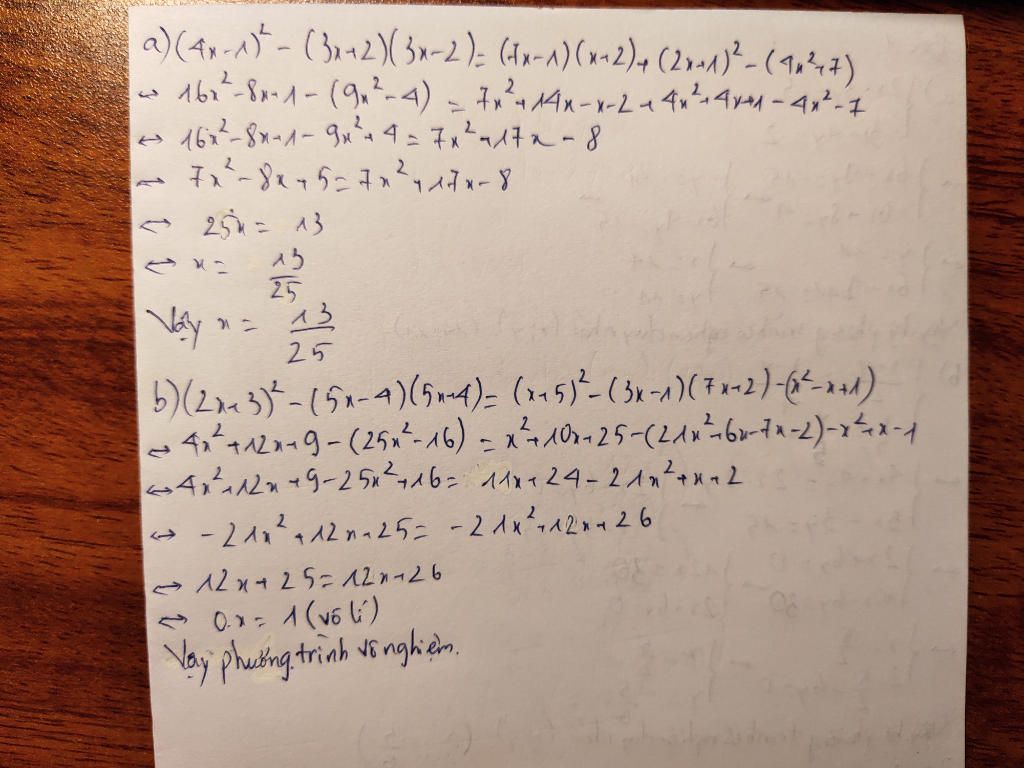 a) (4x-1)² - (3x+2)(3x-2) = (7x-1)(x+2) + (2x+1)² - (4x²+7)
⇔ 16x²-8x+1 - (9x²-4) = 7x²+14x-x-2+4x²+4x+1-4x²-7
⇔ 16x²-8x+1-9x²+4 = 7x²+17x-8
⇔ 7x²-8x+5 = 7x²+17x-8
⇔ 25x = 13
⇔ x = 13/25
Vậy x = 13/25
b) (2x+3)² - (5x-4)(5x+4) = (x+5)² - (3x-1)(7x+2) - (x²-x+1)
⇔ 4x²+12x+9 - (25x²-16) = x²+10x+25-(21x²+6x-7x-2)-x²+x-1
⇔ 4x²+12x+9-25x²+16 = 11x+24-21x²+x+2
⇔ -21x²+12x+25 = -21x²+12x+26
⇔ 12x+25 = 12x+26
⇔ 0x = 1 (vô lí)
Vậy phương trình vô nghiệm.